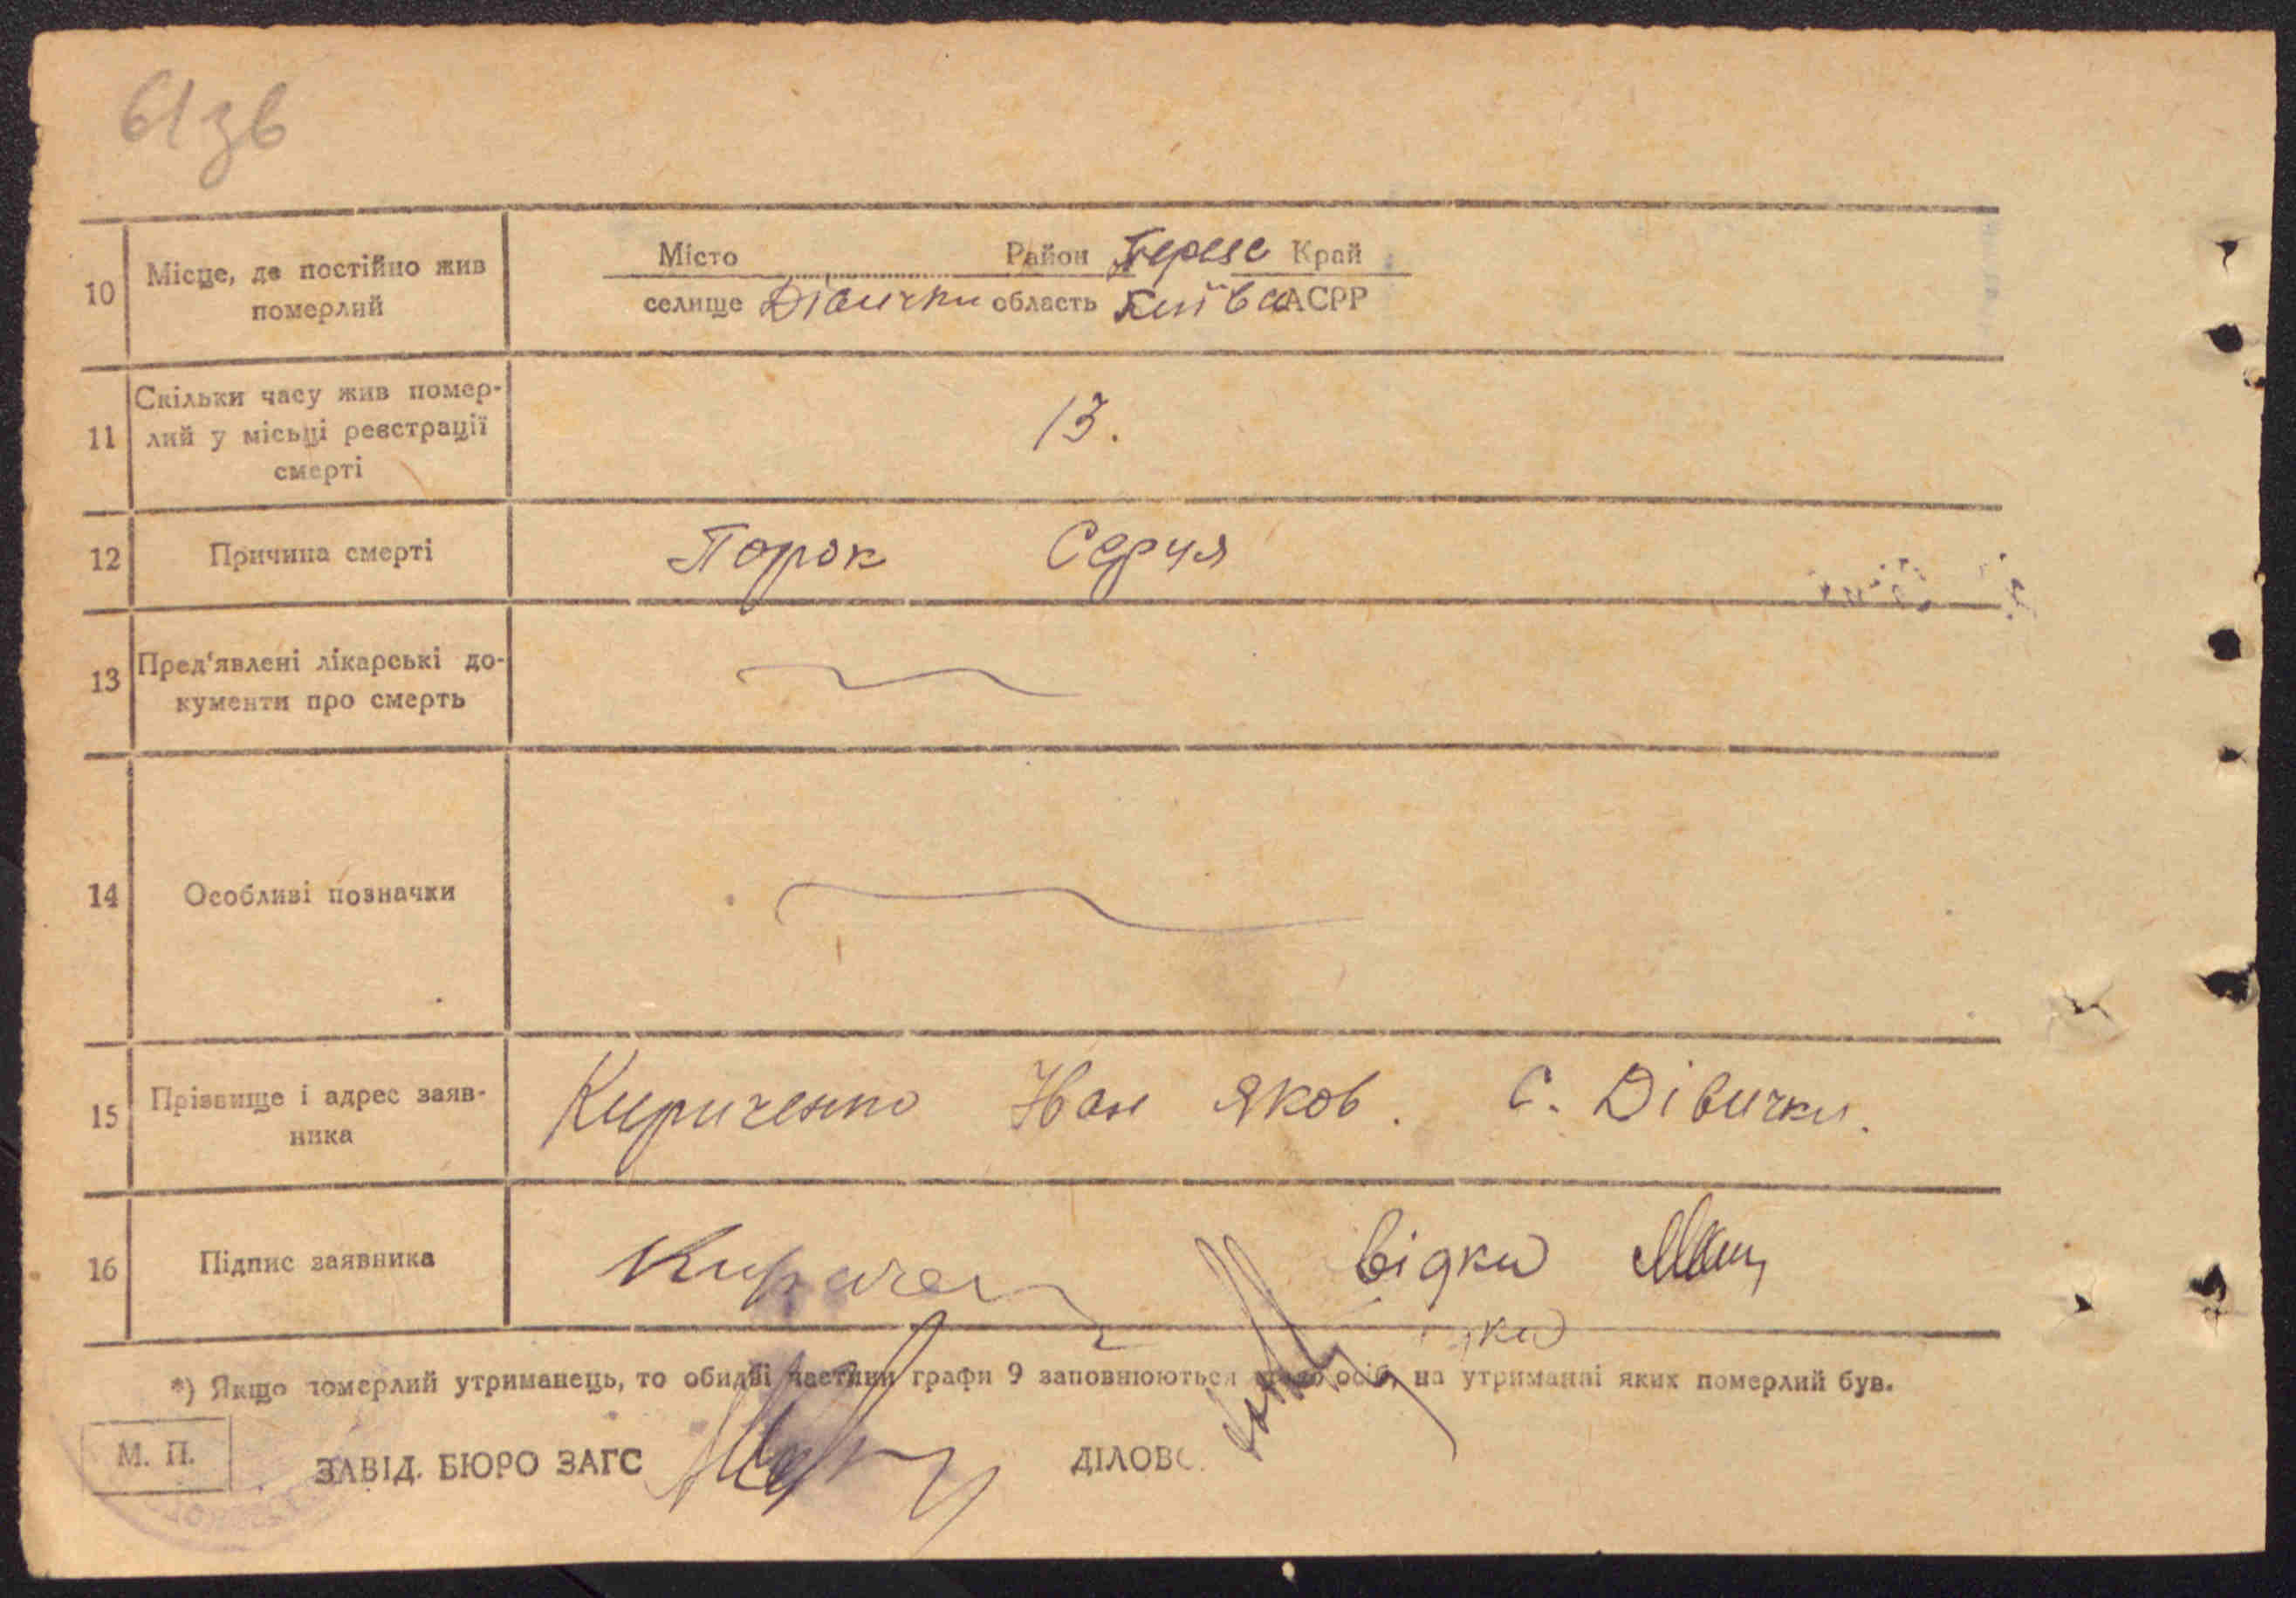 61зв
Місто Район Переяс Край
10 Місце, де постійно жив померлий
селище Дівички область Київсь АСРР
11 Скільки часу жив помер-
лий у місьці реєстрації
смерті
13.
12 Причина смерті Порок Серця
13 Пред'явлені лікарські до-
кументи про смерть
14 Особливі позначки
15 Прізвище і адрес заяв-
ника
Кириченко Іван Яков. С. Дівички.
16 Підпис заявника Кириче
*) Якщо померлий утриманець, то обидві частини графи 9 заповнюються щодо осіб, на утриманні яких померлий був.
М. П. ЗАВІД. БЮРО ЗАГС ДІЛОВО